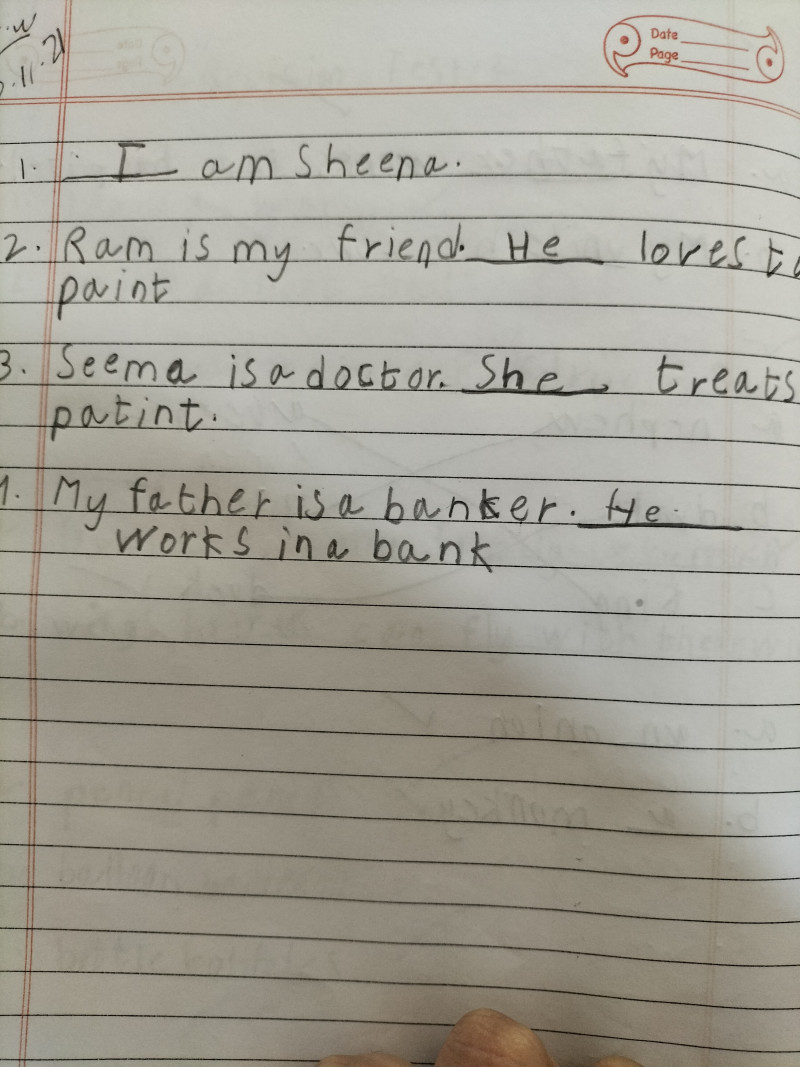 .11.21
Date
Page
1. I am Sheena.
2. Ram is my friend. He loves to
paint
3. Seema is a doctor. She, treats
patint.
4. My father is a banker. He.
works in a bank